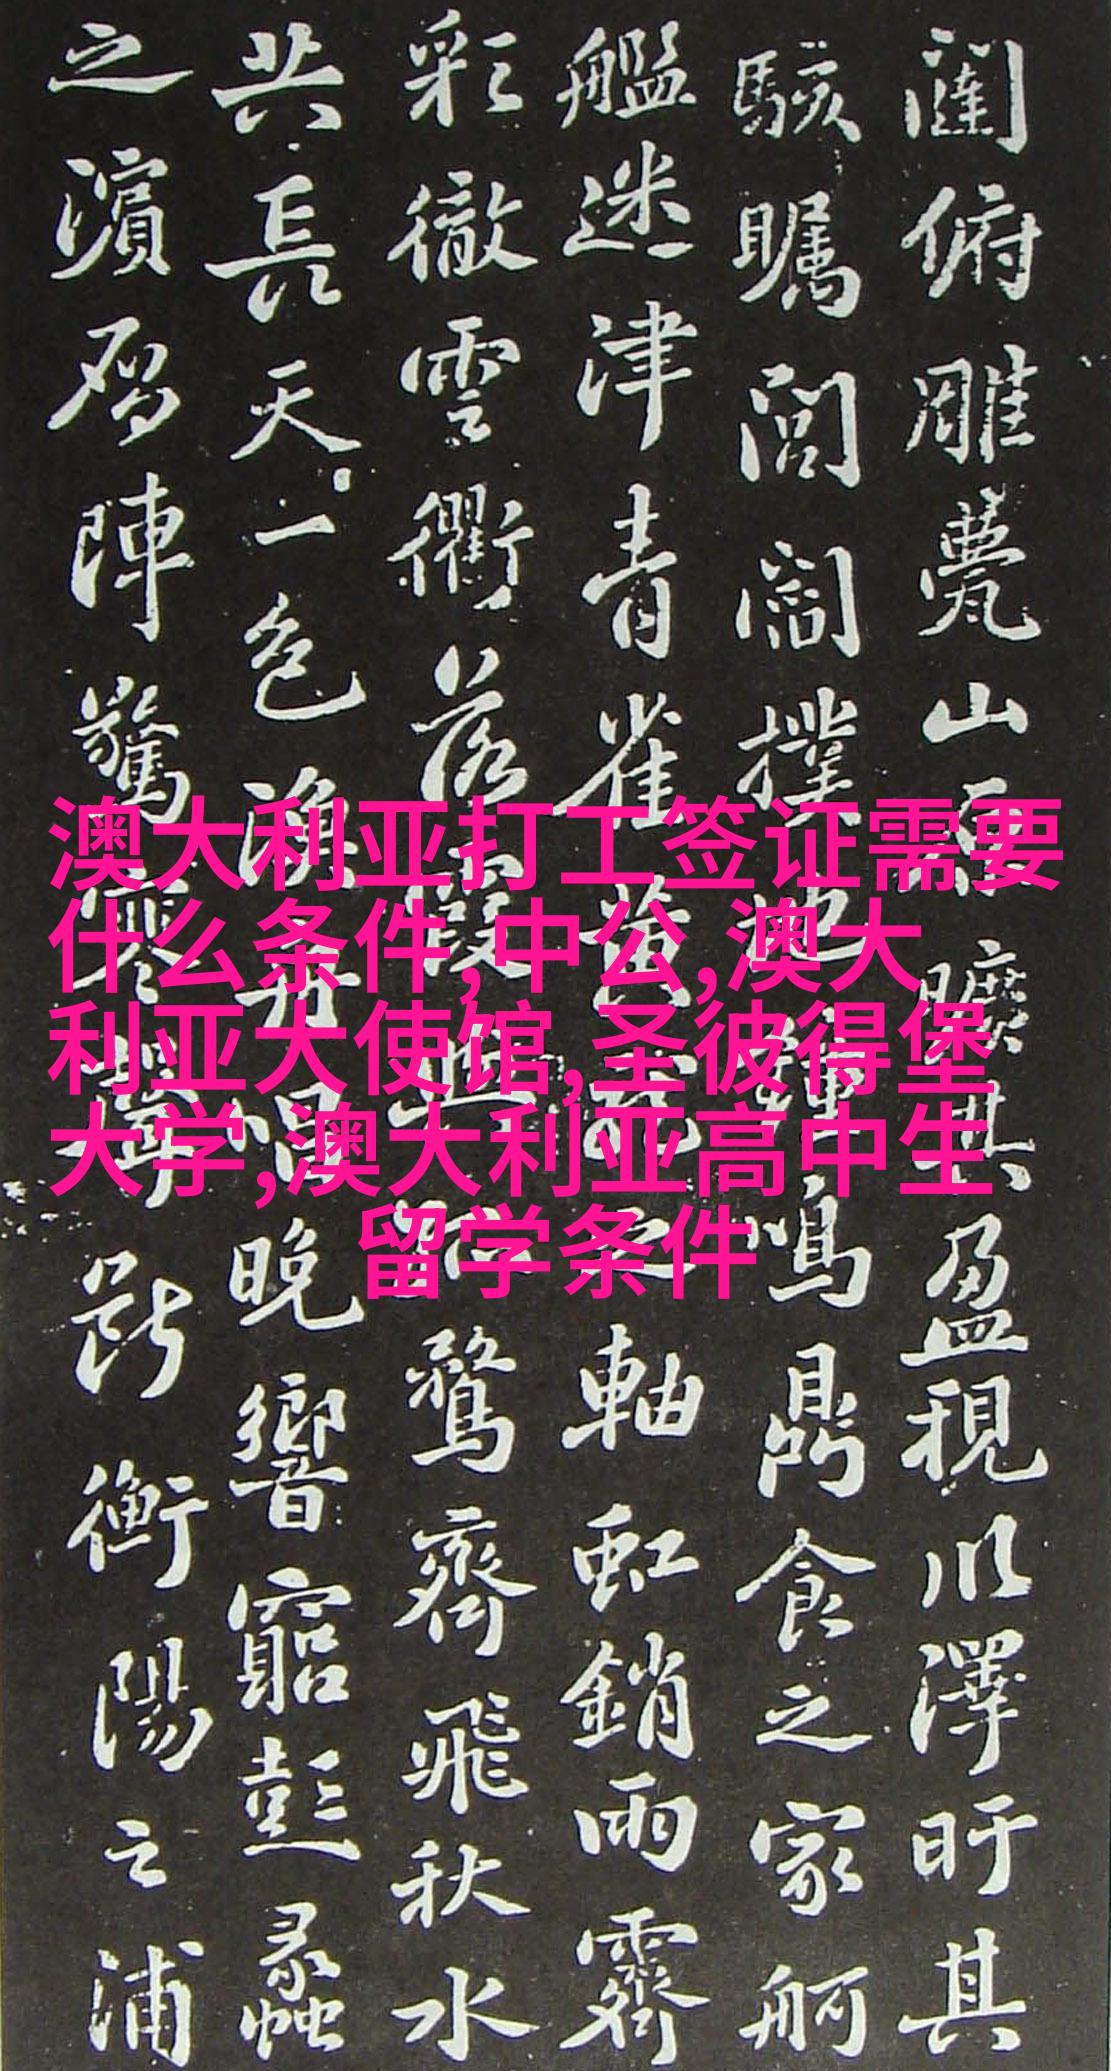 闥俯雕甍山原曠其盈視川澤盱其
駭矚閭閻撲地鍾鳴鼎食之家舸
艦迷津青雀黃龍之軸虹銷雨霽
彩徹雲衢落霞與孤鶩齊飛秋水
共長天一色漁舟唱晚響窮彭蠡
之濱雁陣驚寒聲斷衡陽之浦
澳大利亚打工签证需要
什么条件,中公,澳大
利亚大使馆,圣彼得堡
大学,澳大利亚高中生
留学条件